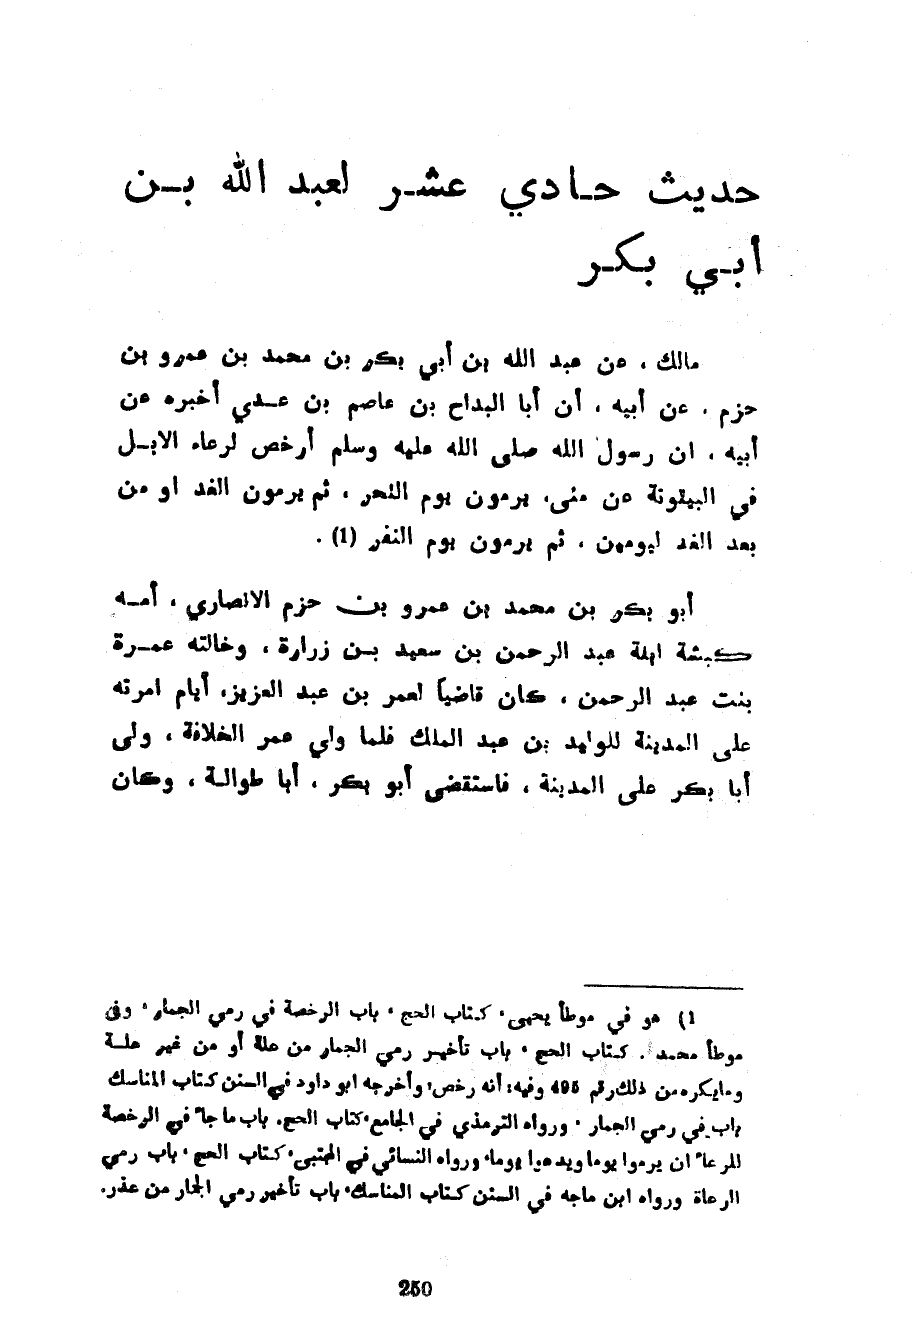 حديث حادي عشر لعبد الله بن
أبي بكر
مالك ، عن عبد الله بن أبي بكر بن محمد بن عمرو بن
حزم ، عن أبيه ، أن أبا البداح بن عاصم بن عدي أخبره عن
أبيه ، ان رسول الله صلى الله عليه وسلم أرخص لرعاء الابل
في البيتوتة عن منى، يرمون يوم النحر ، ثم يرمون الغد او من
بعد الغد ليومين ، ثم يرمون يوم النفر (1) .
أبو بكر بن محمد بن عمرو بن حزم الانصاري ، أمه
كبشة ابنة عبد الرحمن بن سعيد بن زرارة ، وخالته عمرة
بنت عبد الرحمن ، كان قاضياً لعمر بن عبد العزيز، أيام امرته
على المدينة للوليد بن عبد الملك فلما ولي عمر الخلافة ، ولى
أبا بكر على المدينة ، فاستقضى أبو بكر ، أبا طوالة ، وكان
1) هو في موطأ يحيى، كتاب الحج ، باب الرخصة في رمي الجمار ، وفى
موطأ محمد . كتاب الحج ، باب تأخير رمي الجمار من علة أو من غير علة
ومايكره من ذلك رقم 495 وفيه: أنه رخص، وأخرجه ابو داود في السنن كتاب المناسك
باب في رمي الجمار ، ورواه الترمذي في الجامع، كتاب الحج، باب ما جاء في الرخصة
للرعاء ان يرموا يوما ويدعوا يوما، ورواه النسائي في المجتبى، كتاب الحج ، باب رمي
الرعاة ورواه ابن ماجه في السنن كتاب المناسك، باب تأخير رمي الجمار من عذر.
250